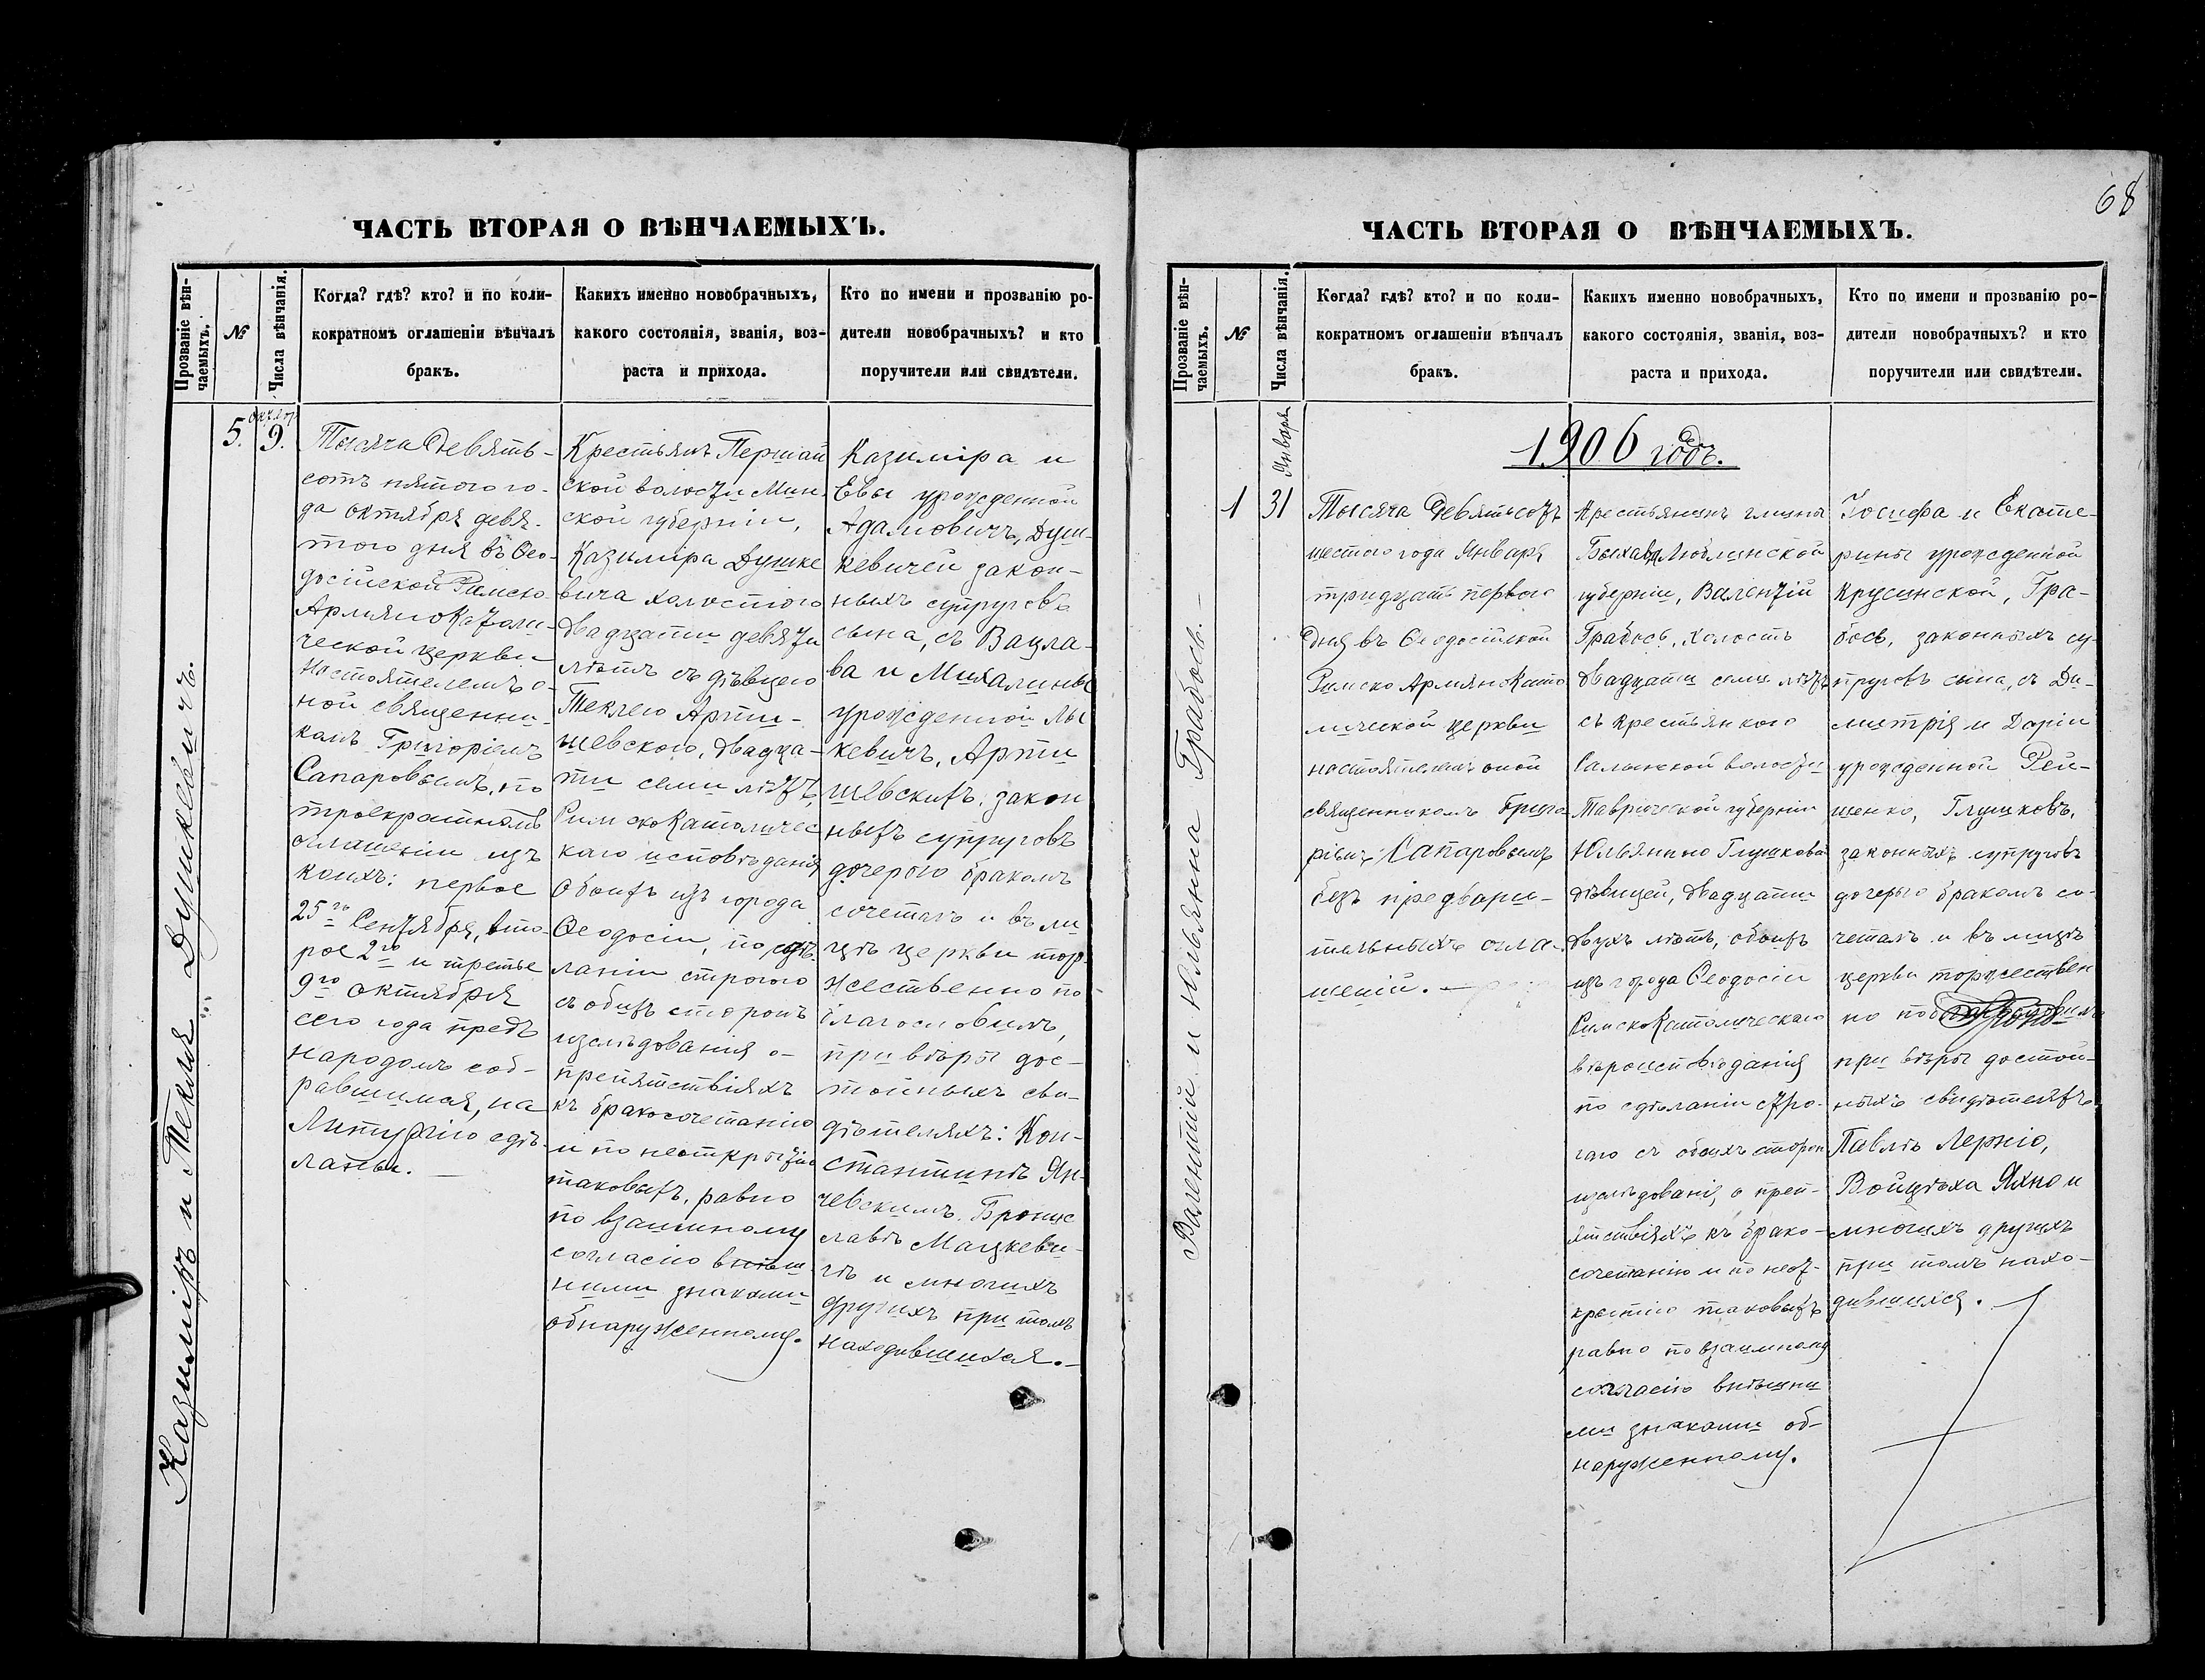 ЧАСТЬ ВТОРАЯ О ВѢНЧАЕМЫХЪ.
Прозваніе вѣн-
чаемыхъ.
№
Числа вѣнчанія.
Когда? гдѣ? кто? и по коли-
кократномъ оглашеніи вѣнчалъ
бракъ.
Какихъ именно новобрачныхъ,
какого состоянія, званія, воз-
раста и прихода.
Кто по имени и прозванію ро-
дители новобрачныхъ? и кто
поручители или свидѣтели.
Казиміръ и Текля Душкевичъ.
5.
9.
Тысяча Девять-
сотъ пятого го-
да октября девя-
того дня въ Ѳео-
досійской Римско
Армянокатоли-
ческой церкви
Настоятелемъ о-
ной священни-
комъ Григоріемъ
Сапаровымъ, по
троекратномъ
оглашеніи изъ
коихъ: первое
25го Сентября, вто-
рое 2го и третье
9го октября
сего года предъ
народомъ соб-
равшимся, на
Литургію сдѣ-
ланы.
Крестьянъ Першай
ской волости Мин-
ской губерніи,
Казиміра Душке
вича холостого
двадцати девяти
лѣтъ съ дѣвцею
Теклею Арти-
шевскою, двадца-
ти семи лѣтъ,
Римскокатоличес
каго исповѣданія
обоихъ изъ города
Ѳеодосіи, по сдѣ-
ланіи строгого
съ обихъ сторонъ
изслѣдованія о-
препятствіяхъ
къ бракосочетанію
и по неоткрытію
таковыхъ, равно
по взаимному
согласію внѣш-
ними знаками
обнаруженному.
Казиміра и
Евы урожденной
Адамовичъ, Душ-
кевичей закон-
ныхъ супруговъ
сына, съ Вацла-
ва и Михалины
урожденной Лы
кевичъ, Арти
шевскихъ, закон
ныхъ супруговъ
дочерью бракомъ
сочеталъ и въ ли
цѣ церкви тор-
жественно по
благословилъ,
при вѣры дос-
тойныхъ сви-
дѣтеляхъ: Кон-
стантинѣ Ян-
чевскимъ, Бронис
лавѣ Мацкеви-
чѣ и многихъ
другихъ при томъ
находившихся.-
68
ЧАСТЬ ВТОРАЯ О ВѢНЧАЕМЫХЪ.
Прозваніе вѣн-
чаемыхъ.
№
Числа вѣнчанія.
Когда? гдѣ? кто? и по коли-
кократномъ оглашеніи вѣнчалъ
бракъ.
Какихъ именно новобрачныхъ,
какого состоянія, званія, воз-
раста и прихода.
Кто по имени и прозванію ро-
дители новобрачныхъ? и кто
поручители или свидѣтели.
Валентій и Юльянна Грабось.-
Января
1906 годъ.
1
31
Тысяча Девятьсотъ
шестого года Января
тридцать первого
дня въ Ѳеодосійской
Римско Армянокато
лической церкви
настоятелемъ оной
священникомъ Григо
ріемъ Сапаровымъ
безъ предвари-
тельныхъ огла-
шеній.-
Крестьянинъ гмина
Быхава Люблинской
губерніи, Валентій
Грабось, холостъ
двадцати семи лѣтъ
съ крестьянкою
волости
Таврической губерніи
Юльянною Глушковой
дѣвицей, двадцати
двухъ лѣтъ, обоихъ
изъ города Ѳеодосіи
Римскокатолическаго
вѣроисповѣданія
по сдѣланіи стро-
гаго съ обоихъ сторон
изслѣдованія о преп-
ятствіяхъ къ брако-
сочетанію и по неот-
крытію таковыхъ
равно по взаимному
согласію внѣшни
ми знаками об-
наруженному.
Іосифа и Екате-
рины урожденной
Крусинской, Гра-
бось, законныхъ су-
пруговъ сына, съ Ди-
митрія и Даріи
урожденной Рей-
шенко, Глушковъ,
законныхъ супруговъ
дочерью бракомъ со-
четалъ и въ лицѣ
церкви торжествен
но поблагословилъ
при вѣры достой-
ныхъ свидѣтеляхъ
Павлѣ Лернію,
Войцѣха Яхно и
многихъ другихъ
при томъ нахо-
дившихся.